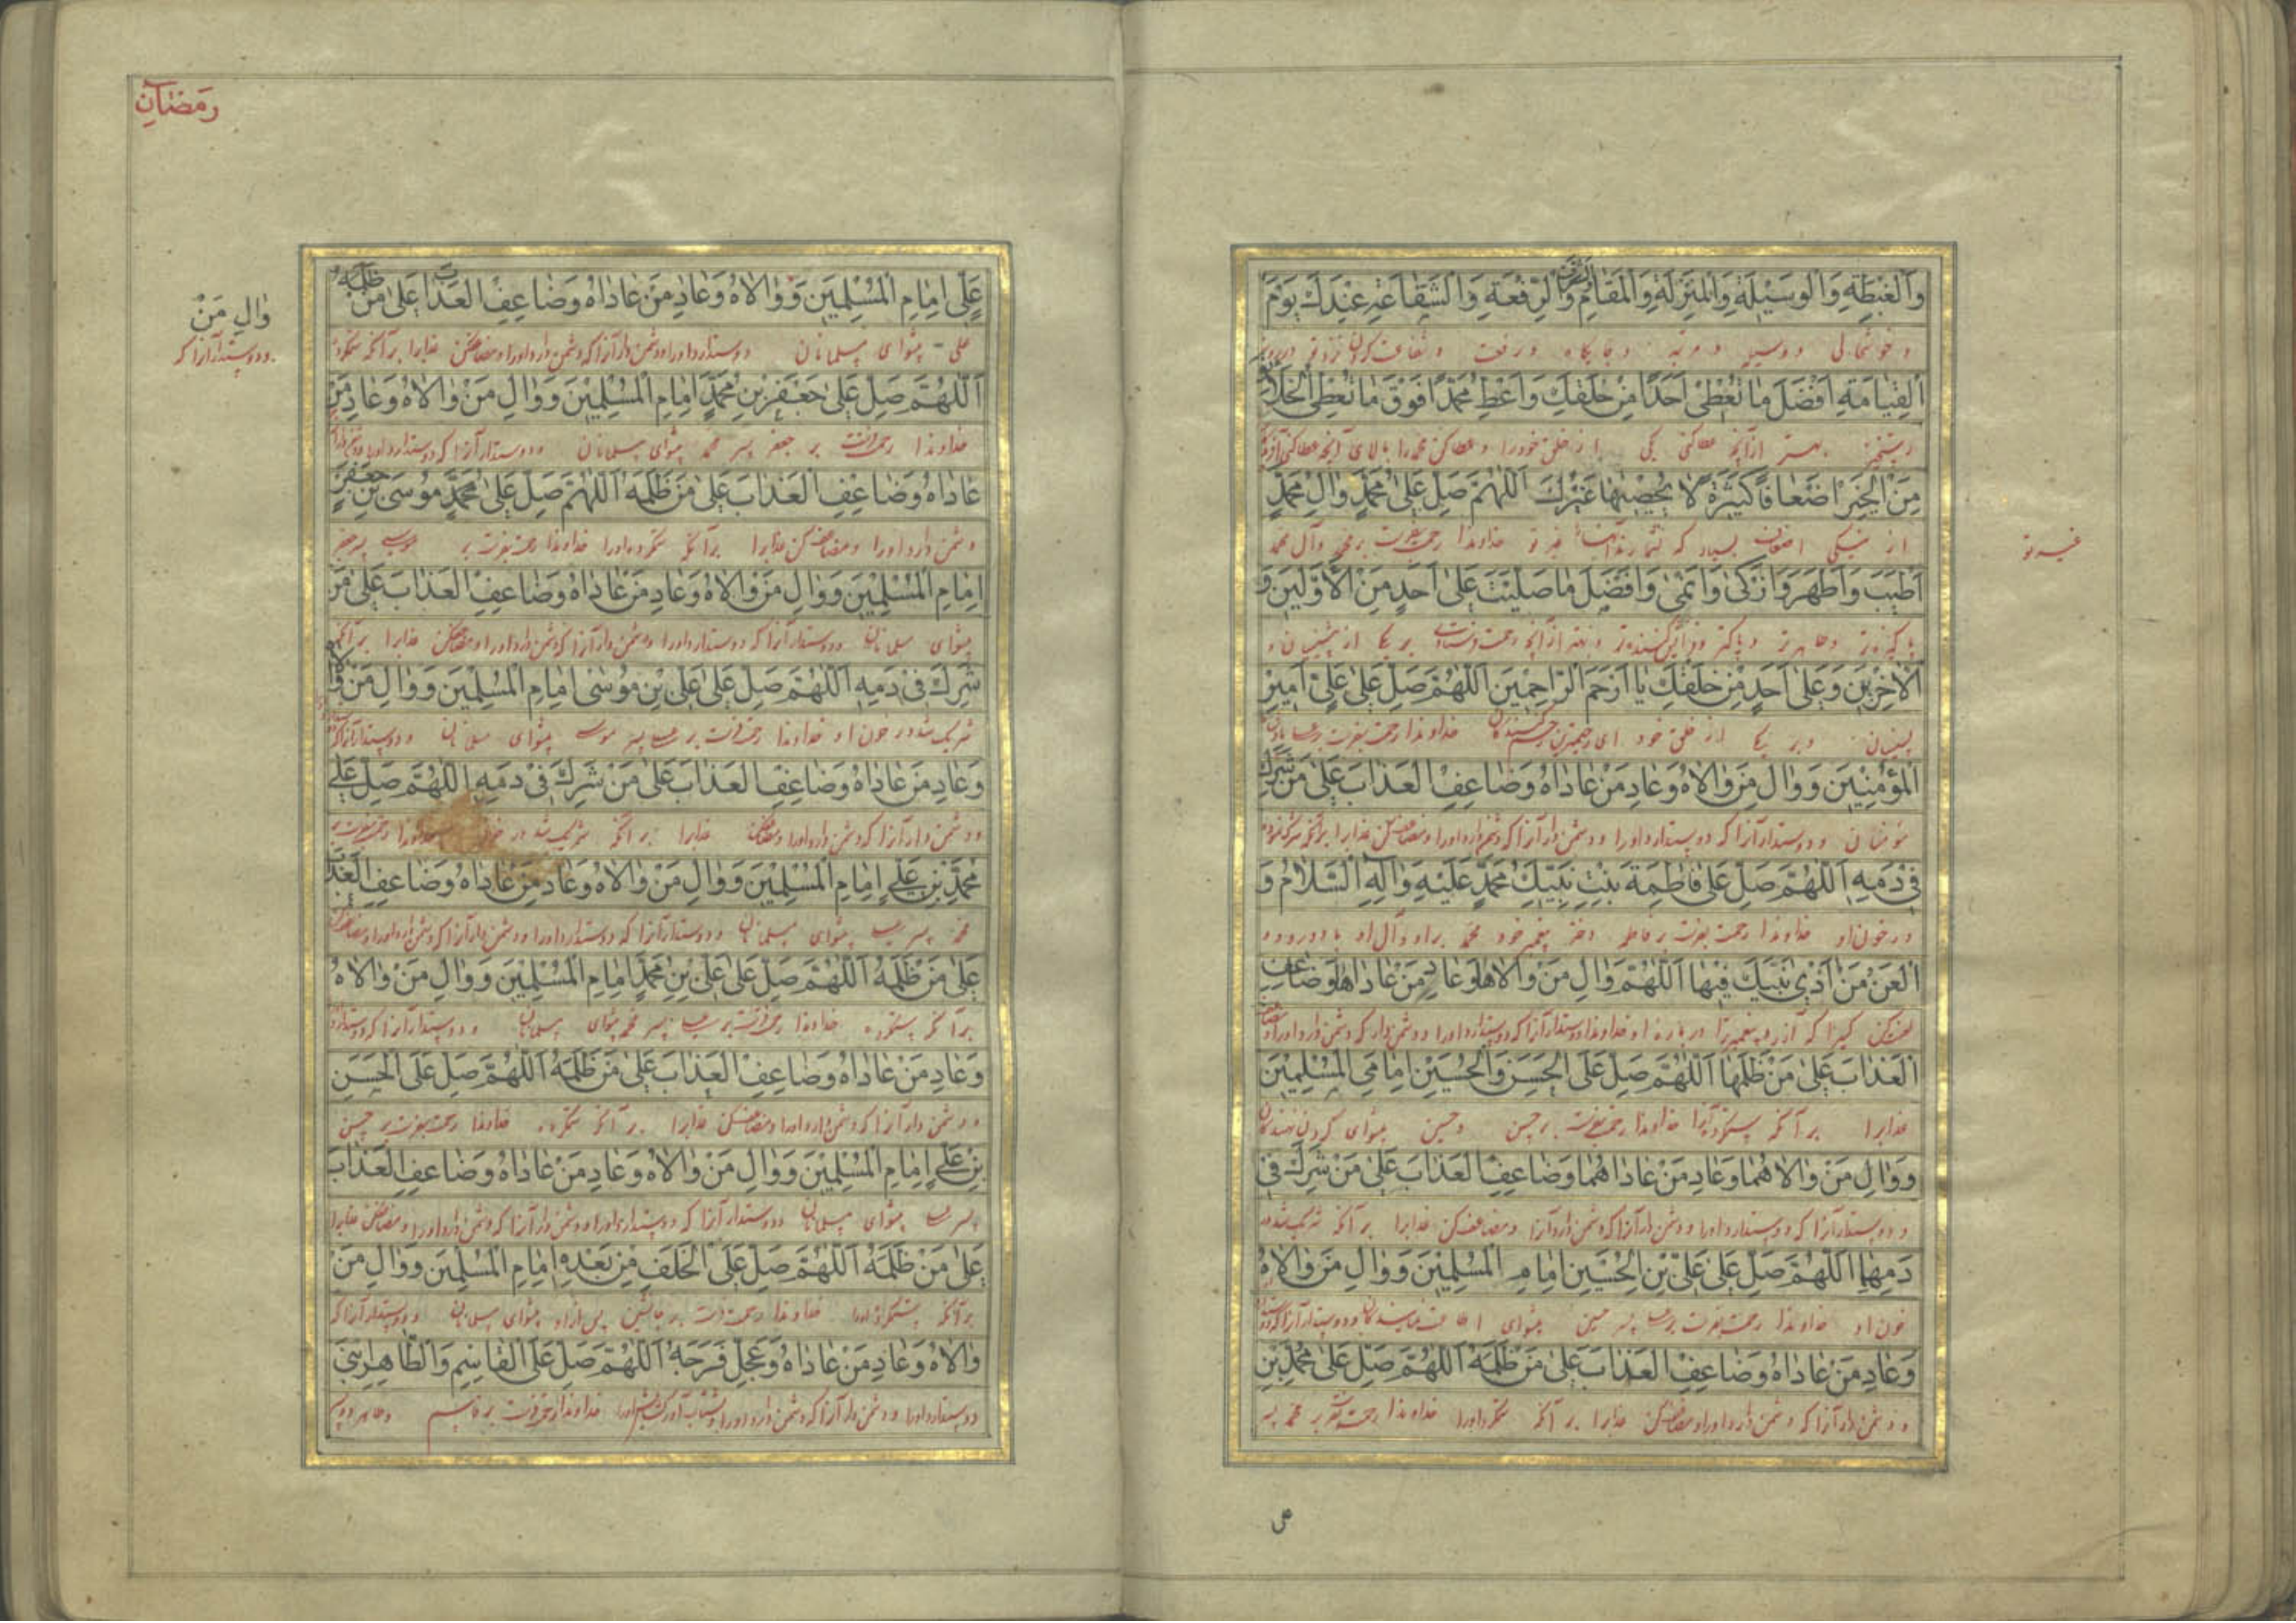 وَالْغِبْطَةِ وَالْوَسِيلَةِ وَالْمَنْزِلَةِ وَالْمَقَامِ وَالشَّرَفِ وَالرِّفْعَةِ وَالشَّفَاعَةِ عِنْدَكَ يَوْمَ
و خوشحالی و وسیله و مرتبه و جایگاه و رفعت و شفاعت کردن نزد تو در روز
الْقِيَامَةِ اَفْضَلَ مَا تُعْطِي اَحَدًا مِنْ خَلْقِكَ وَاَعْطِ مُحَمَّدًا فَوْقَ مَا تُعْطِي الْخَلَائِقَ
رستخیز بهتر از آنچه عطا کنی یکی را از خلق خود را و عطا کن محمد را بالای آنچه عطا کنی
مِنَ الْخَيْرِ اَضْعَافًا كَثِيرَةً لَا يُحْصِيهَا غَيْرُكَ اَللّٰهُمَّ صَلِّ عَلٰى مُحَمَّدٍ وَاٰلِ مُحَمَّدٍ
از نیکی اضعاف بسیار که نشمارد آنها را غیر تو خداوندا رحمت بفرست بر محمد و آل محمد
غیر تو
اَطْيَبَ وَاَطْهَرَ وَاَزْكٰى وَاَنْمٰى وَاَفْضَلَ مَا صَلَّيْتَ عَلٰى اَحَدٍ مِنَ الْاَوَّلِينَ وَ
پاکیزه‌تر و طاهرتر و پاکتر و بهتر از آنچه رحمت فرستادی بر یکی از پیشینیان و
الْاٰخِرِينَ وَعَلٰى اَحَدٍ مِنْ خَلْقِكَ يَا اَرْحَمَ الرَّاحِمِينَ اَللّٰهُمَّ صَلِّ عَلٰى عَلِيٍّ اَمِيرِ
پسینیان و بر یکی از خلق خود ای رحیمترین رحم کنندگان خداوندا رحمت بفرست بر علی
الْمُؤْمِنِينَ وَوَالِ مَنْ وَالَاهُ وَعَادِ مَنْ عَادَاهُ وَضَاعِفِ الْعَذَابَ عَلٰى مَنْ شَرِكَ
مؤمنان و دوستدار آنرا که دوستدارد او را و دشمن دار آنرا که دشمن دارد او را و مضاعف کن عذابرا بر آنکه
فِي دَمِهِ اَللّٰهُمَّ صَلِّ عَلٰى فَاطِمَةَ بِنْتِ نَبِيِّكَ مُحَمَّدٍ عَلَيْهِ وَاٰلِهِ السَّلَامُ وَ
در خون او خداوندا رحمت بفرست بر فاطمه دختر پیغمبر خود محمد بر او و آل او باد درود و
الْعَنْ مَنْ اٰذٰى نَبِيَّكَ فِيهَا اَللّٰهُمَّ وَالِ مَنْ وَالَاهَا وَعَادِ مَنْ عَادَاهَا وَضَاعِفِ
لعن کن کسیرا که آزرد پیغمبرترا در باره او خداوندا دوستدار آنرا که دوستدارد او را و دشمن دار که دشمن دارد او را
الْعَذَابَ عَلٰى مَنْ ظَلَمَهَا اَللّٰهُمَّ صَلِّ عَلَى الْحَسَنِ وَالْحُسَيْنِ اِمَامَيِ الْمُسْلِمِينَ
عذابرا بر آنکه ستم کرد او را خداوندا رحمت بفرست بر حسن و حسین پیشوای گردن نهندگان
وَوَالِ مَنْ وَالَاهُمَا وَعَادِ مَنْ عَادَاهُمَا وَضَاعِفِ الْعَذَابَ عَلٰى مَنْ شَرِكَ فِي
و دوستدار آنرا که دوستدارد او را و دشمن دار آنرا که دشمن دارد آنرا و مضاعف کن عذابرا بر آنکه شریک شد در
دَمِهِمَا اَللّٰهُمَّ صَلِّ عَلٰى عَلِيِّ بْنِ الْحُسَيْنِ اِمَامِ الْمُسْلِمِينَ وَوَالِ مَنْ وَالَاهُ
خون او خداوندا رحمت بفرست بر علی پسر حسین پیشوای اطاعت نمایندگان و دوستدار آنرا که
وَعَادِ مَنْ عَادَاهُ وَضَاعِفِ الْعَذَابَ عَلٰى مَنْ ظَلَمَهُ اَللّٰهُمَّ صَلِّ عَلٰى مُحَمَّدِ بْنِ
و دشمن دار آنرا که دشمن دارد او را و مضاعف کن عذابرا بر آنکه ستم کرد او را خداوندا رحمت بفرست بر محمد پسر
رَمَضَان
عَلِيٍّ اِمَامِ الْمُسْلِمِينَ وَوَالَاهُ وَعَادِ مَنْ عَادَاهُ وَضَاعِفِ الْعَذَابَ عَلٰى مَنْ ظَلَمَهُ
وَالِ مَنْ
و دوستدار آنرا که
علی پیشوای مسلمانان دوستدارد او را و دشمن دار آنرا که دشمن دارد او را و مضاعف کن عذابرا بر آنکه ستم کرد
اَللّٰهُمَّ صَلِّ عَلٰى جَعْفَرِ بْنِ مُحَمَّدٍ اِمَامِ الْمُسْلِمِينَ وَوَالِ مَنْ وَالَاهُ وَعَادِ مَنْ
خداوندا رحمت بر جعفر پسر محمد پیشوای مسلمانان و دوستدار آنرا که دوستدارد او را
عَادَاهُ وَضَاعِفِ الْعَذَابَ عَلٰى مَنْ ظَلَمَهُ اَللّٰهُمَّ صَلِّ عَلٰى مُحَمَّدٍ مُوسَى بْنِ جَعْفَرٍ
دشمن دارد او را و مضاعف کن عذابرا بر آنکه ستم کرد او را خداوندا رحمت بفرست بر موسی پسر جعفر
اِمَامِ الْمُسْلِمِينَ وَوَالِ مَنْ وَالَاهُ وَعَادِ مَنْ عَادَاهُ وَضَاعِفِ الْعَذَابَ عَلٰى مَنْ
پیشوای مسلمانان و دوستدار آنرا که دوستدارد او را و دشمن دار آنرا که دشمن دارد او را و مضاعف کن عذابرا بر آنکه
شَرِكَ فِي دَمِهِ اَللّٰهُمَّ صَلِّ عَلٰى عَلِيِّ بْنِ مُوسٰى اِمَامِ الْمُسْلِمِينَ وَوَالِ مَنْ وَالَاهُ
شریک شد در خون او خداوندا رحمت بر علی پسر موسی پیشوای مسلمانان و دوستدار آنرا که
وَعَادِ مَنْ عَادَاهُ وَضَاعِفِ الْعَذَابَ عَلٰى مَنْ شَرِكَ فِي دَمِهِ اَللّٰهُمَّ صَلِّ عَلٰى
و دشمن دار آنرا که دشمن دارد او را و مضاعف کن عذابرا بر آنکه شریک شد در خون خداوندا رحمت بفرست بر
مُحَمَّدِ بْنِ عَلِيٍّ اِمَامِ الْمُسْلِمِينَ وَوَالِ مَنْ وَالَاهُ وَعَادِ مَنْ عَادَاهُ وَضَاعِفِ الْعَذَابَ
محمد پسر علی پیشوای مسلمانان و دوستدار آنرا که دوستدارد او را و دشمن دار آنرا که دشمن دارد او را
عَلٰى مَنْ ظَلَمَهُ اَللّٰهُمَّ صَلِّ عَلٰى عَلِيِّ بْنِ مُحَمَّدٍ اِمَامِ الْمُسْلِمِينَ وَوَالِ مَنْ وَالَاهُ
بر آنکه ستم کرد خداوندا رحمت بر علی پسر محمد پیشوای مسلمانان و دوستدار آنرا که دوستدارد
وَعَادِ مَنْ عَادَاهُ وَضَاعِفِ الْعَذَابَ عَلٰى مَنْ ظَلَمَهُ اَللّٰهُمَّ صَلِّ عَلَى الْحَسَنِ
و دشمن دار آنرا که دشمن دارد او را و مضاعف کن عذابرا بر آنکه ستم کرد خداوندا رحمت بفرست بر حسن
بْنِ عَلِيٍّ اِمَامِ الْمُسْلِمِينَ وَوَالِ مَنْ وَالَاهُ وَعَادِ مَنْ عَادَاهُ وَضَاعِفِ الْعَذَابَ
پسر علی پیشوای مسلمانان و دوستدار آنرا که دوستدارد او را و دشمن دار آنرا که دشمن دارد او را و مضاعف کن عذابرا
عَلٰى مَنْ ظَلَمَهُ اَللّٰهُمَّ صَلِّ عَلَى الْخَلَفِ مِنْ بَعْدِهِ اِمَامِ الْمُسْلِمِينَ وَوَالِ مَنْ
بر آنکه ستم کرد او را خداوندا رحمت بر جانشین پس از او پیشوای مسلمانان و دوستدار آنرا که
وَالَاهُ وَعَادِ مَنْ عَادَاهُ وَعَجِّلْ فَرَجَهُ اَللّٰهُمَّ صَلِّ عَلَى الْقَاسِمِ وَالطَّاهِرِ بَنِي
دوستدارد او را و دشمن دار آنرا که دشمن دارد او را خداوندا رحمت بر قاسم و طاهر